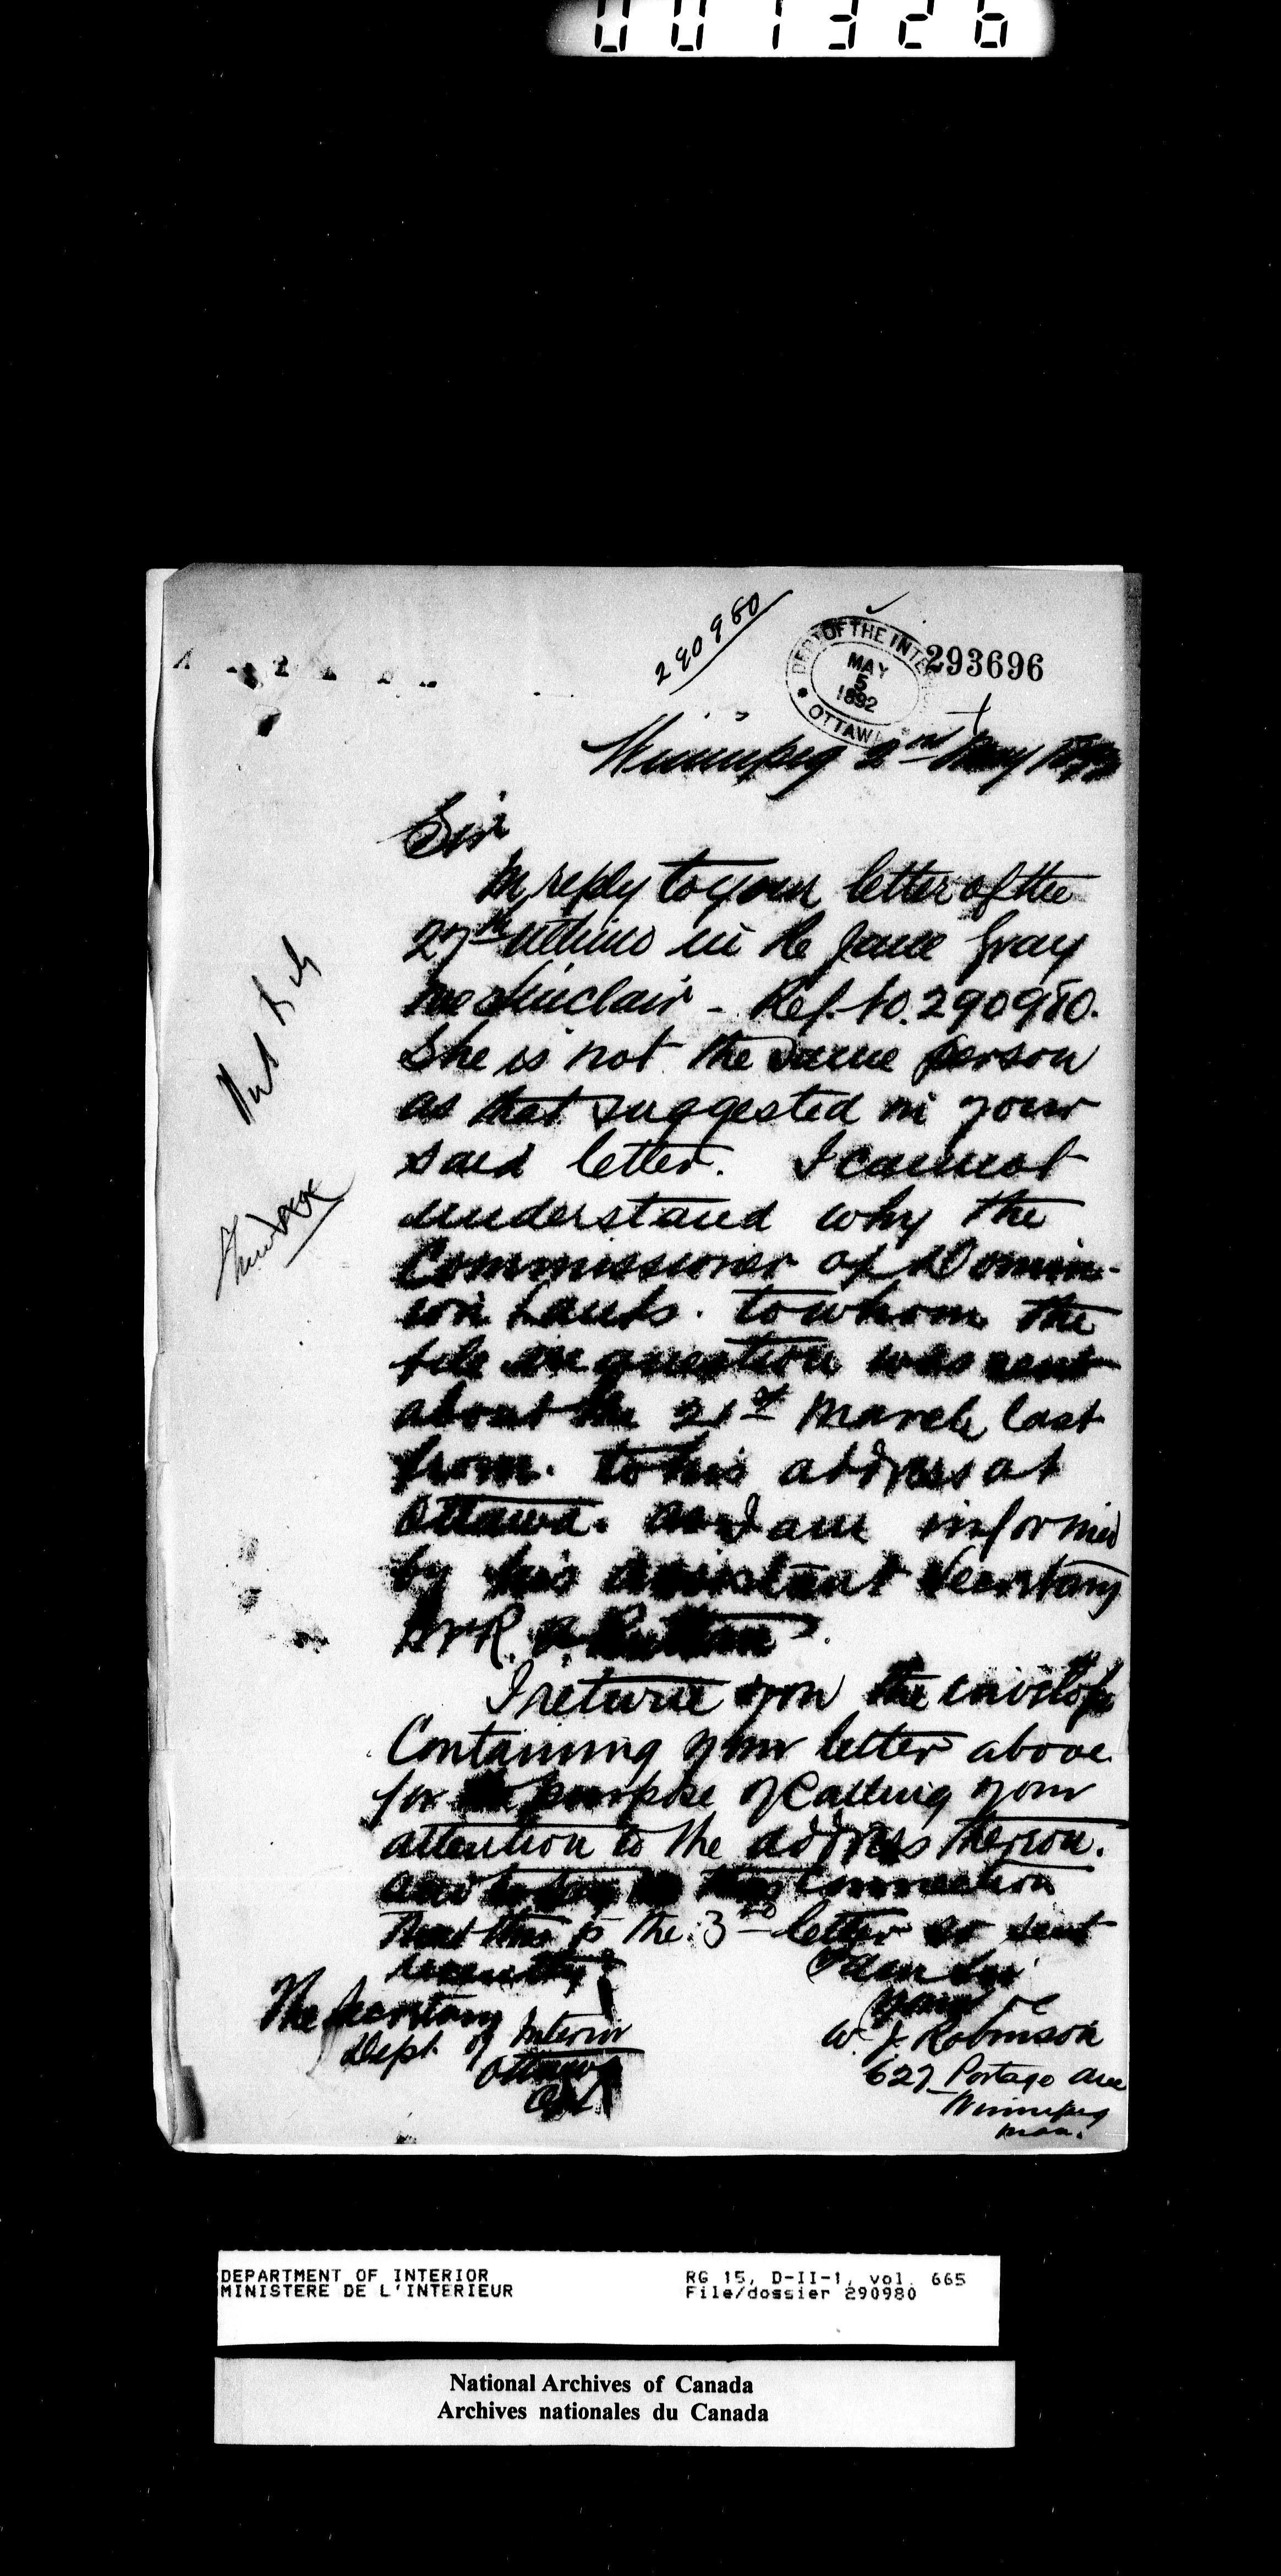 001326
290980
DEPT OF THE INTE
MAY
5
1892
OTTAWA
293696
Winnipeg 2nd May 1892
Sir
In reply to your letter of the
27th ultimo in Re Jane Gray
McSinclair - Ref. to. 290980.
She is not the same person
as that suggested in your
said letter. I cannot
understand why the
Commissioner of Domin-
ion Lands. to whom the
file in question was sent
about the 21st March last
from. to his address at
Ottawa. as I am informed
by his assistant Secretary
Mr R. A. Ruttan.
I return you the envelope
Containing your letter above
for the purpose of Calling your
attention to the address thereon.
and to say in this Connection
that this is the 3rd letter so sent
recently
I am Sir
Yours &c
W. J. Robinson
627 Portage Ave
Winnipeg
Man.
The Secretary
Dept of Interior
Ottawa
Ont
DEPARTMENT OF INTERIOR
MINISTERE DE L'INTERIEUR
RG 15, D-II-1, vol. 665
File/dossier 290980
National Archives of Canada
Archives nationales du Canada